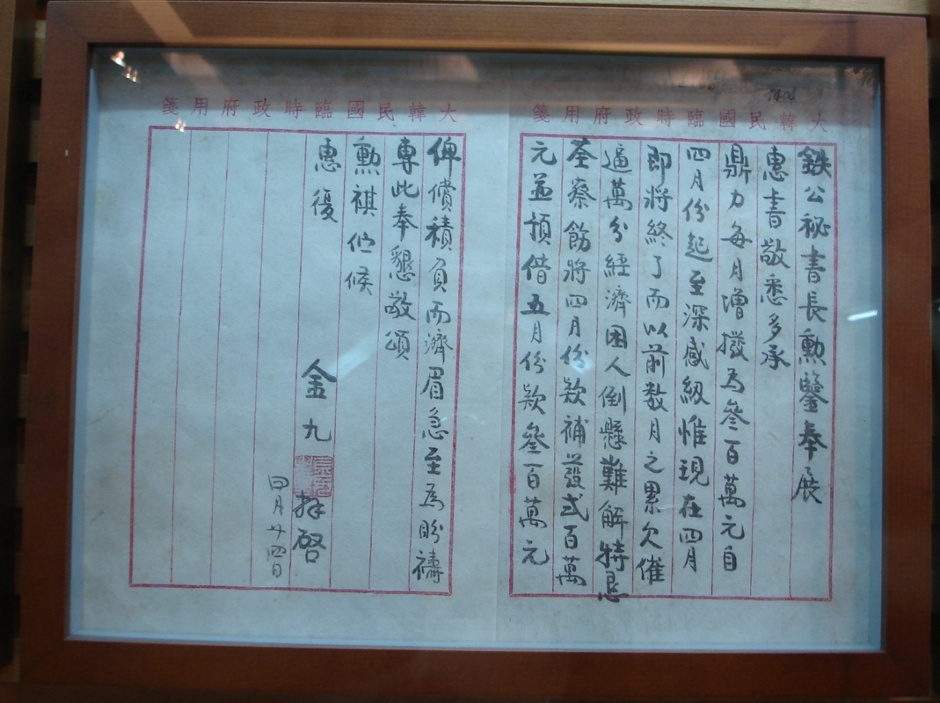 大韓民國臨時政府用箋
鉄公祕書長勳鑒奉展
惠書敬悉多承
鼎力每月增撥為叄百萬元自
四月份起至深感級惟現在四月
即將終了而以前数月之累欠催
逼萬分經濟困人倒懸難解特懇
荃察飭將四月份欵補發弍百萬
元並預借五月份欵叄百萬元
大韓民國臨時政府用箋
俾償積負而濟眉急至為盼禱
專此奉懇敬頌
勳祺伫候
惠復
金九拜啓
四月廿四日